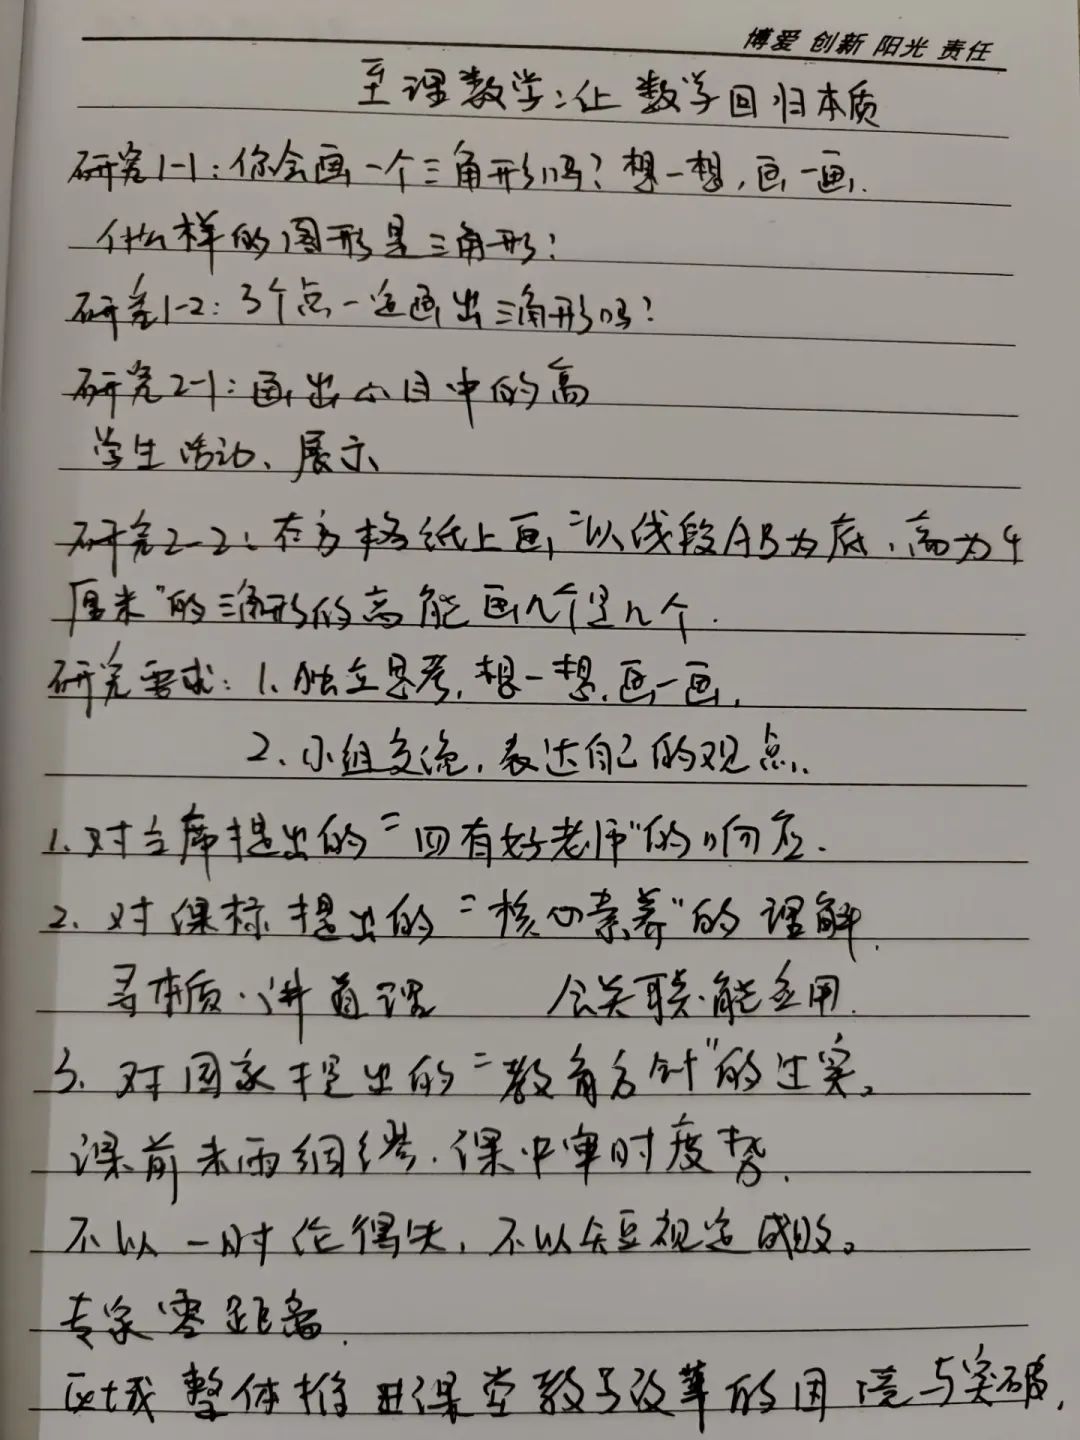 博爱 创新 阳光 责任
至理数学:让数学回归本质
研究1-1:你会画一个三角形吗?想一想,画一画.
什么样的图形是三角形?
研究1-2:3个点一定画出三角形吗?
研究2-1:画出心目中的高
学生活动、展示
研究2-2:在方格纸上画"以线段AB为底,高为4
厘米"的三角形的高能画几个是几个.
研究要求:1.独立思考,想一想,画一画,
2、小组交流,表达自己的观点.
1.对主席提出的"四有好老师"的响应.
2.对课标提出的"核心素养"的理解.
寻本质.讲道理 会关联.能应用.
3.对国家提出的"教育方针"的过实。
课前未雨绸缪.课中审时度势.
不以一时论得失,不以短视定成败。
专家零距离.
区域整体推进课堂教学改革的困境与突破,